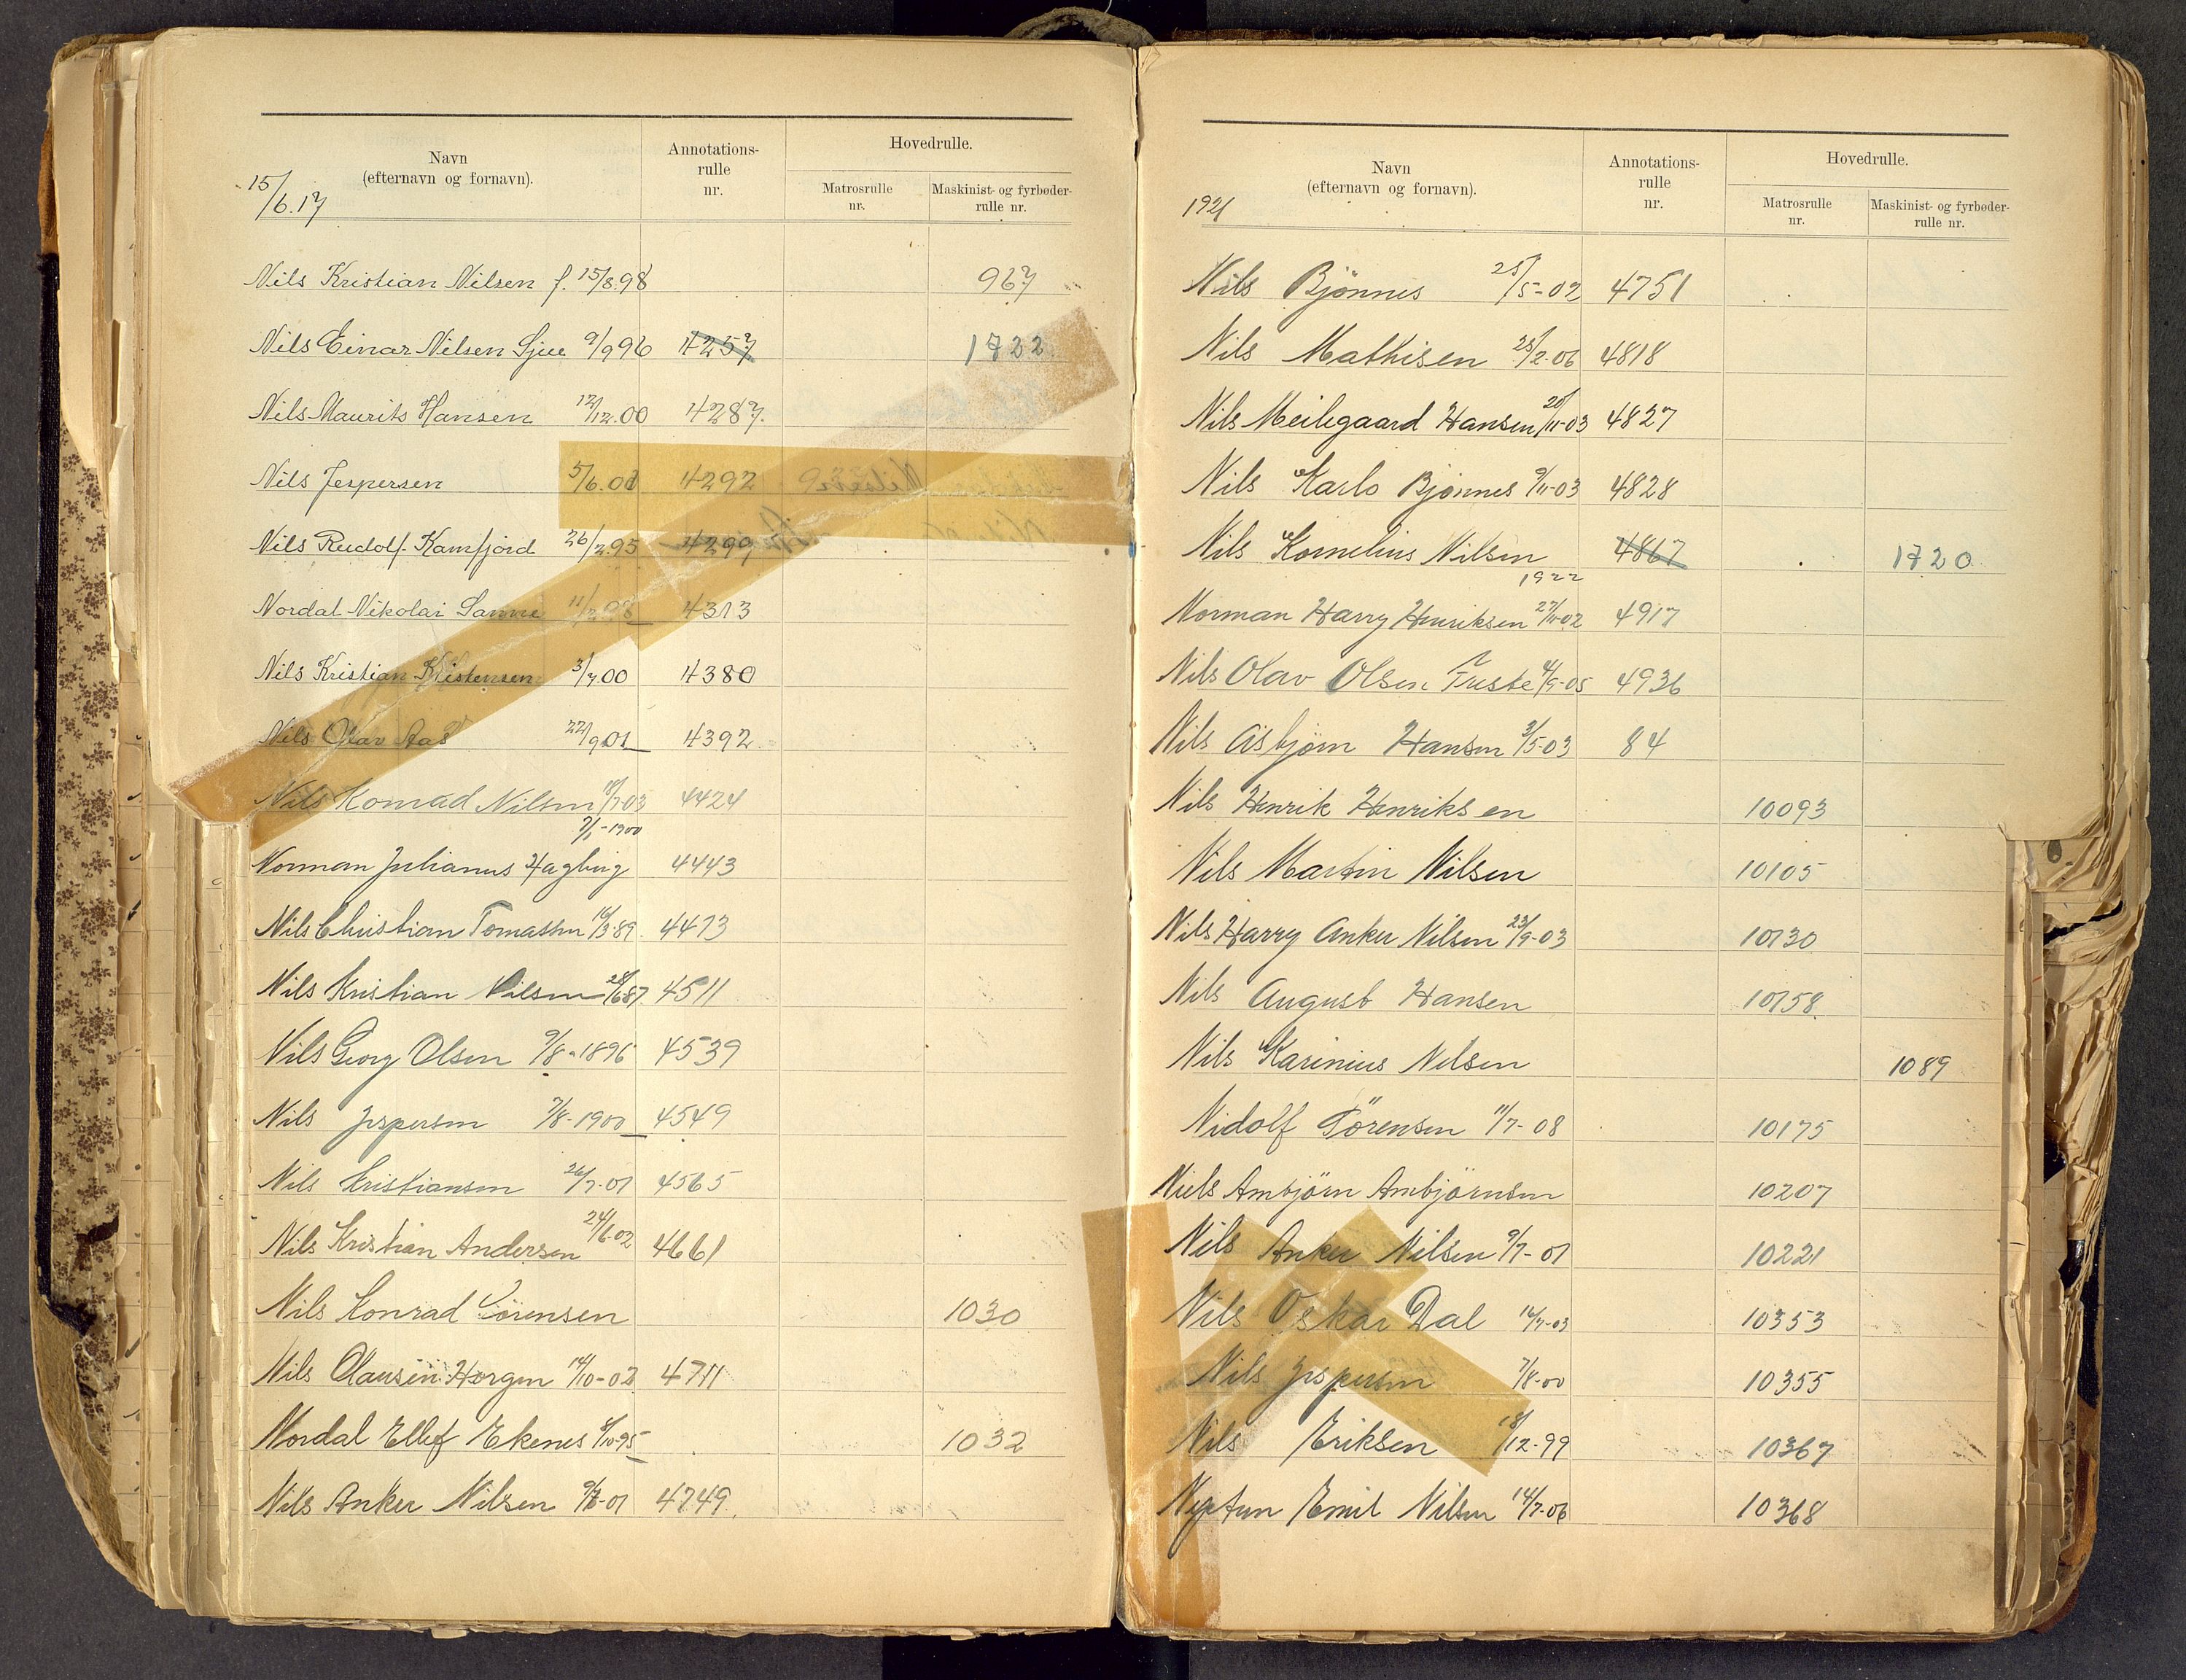 Navn
(efternavn og fornavn).
Annotations-
rulle
nr.
Hovedrulle.
Matrosrulle
nr.
Maskinist- og fyrbøder-
rulle nr.
15/6.17
Nils Kristian Nilsen f. 15/8.98 967
Nils Einar Nilsen Sjue 9/9 96 4257 1722
Nils Maurits Hansen 12/12.00 4287.
Nils Jespersen 5/6.01 4292
Nils Rudolf Kamfjord 26/2.95 4299
Nordal Nikolai Sanne 11/2.98 4313
Nils Kristian Kristensen 3/7.00 4380
Nils Olav Aas 22/9.01 4392
Nils Konrad Nilsen 18/7 03 4424
7/1-1900
Norman Julianus Hagberg 4443
Nils Christian Tomassen 16/3-89 4473
Nils Kristian Nilsen 28/6 87 4511
Nils Georg Olsen 9/8-1896 4539
Nils Jespersen 7/8-1900 4549
Nils Kristiansen 26/7-01 4565
Nils Kristian Andersen 24/6-02 4661
Nils Konrad Sörensen 1030
Nils Clausen Horgen 14/10-02 4711
Nordal Ellef Ekenes 8/10-95 1032
Nils Anker Nilsen 9/7-01 4749
Navn
(efternavn og fornavn).
Annotations-
rulle
nr.
Hovedrulle.
Matrosrulle
nr.
Maskinist- og fyrbøder-
rulle nr.
1921
Nils Bjönnes 25/5-02 4751
Nils Mathisen 25/2-06 4818
Nils Meilegaard Hansen 20/11-03 4827
Nils Karlo Bjønnes 9/11-03 4828
Nils Kornelius Nilsen 4867 1720
1922
Norman Harry Henriksen 27/11-02 4917
Nils Olav Olsen Tuste 4/9-05 4936
Nils Asbjörn Hansen 3/5-03 84
Nils Henrik Henriksen 10093
Nils Martin Nilsen 10105
Nils Harry Anker Nilsen 23/9-03 10130
Nils August Hansen 10158
Nils Karinius Nilsen 1089
Nidolf Sörensen 11/7-08 10175
Niels Ambjörn Ambjörnsen 10207
Nils Anker Nilsen 9/7-01 10221
Nils Oskar Dal 14/7-03 10353
Nils Jespersen 7/8-00 10355
Nils Eriksen 18/12-99 10367
Neptun Emil Nilsen 14/7-06 10368